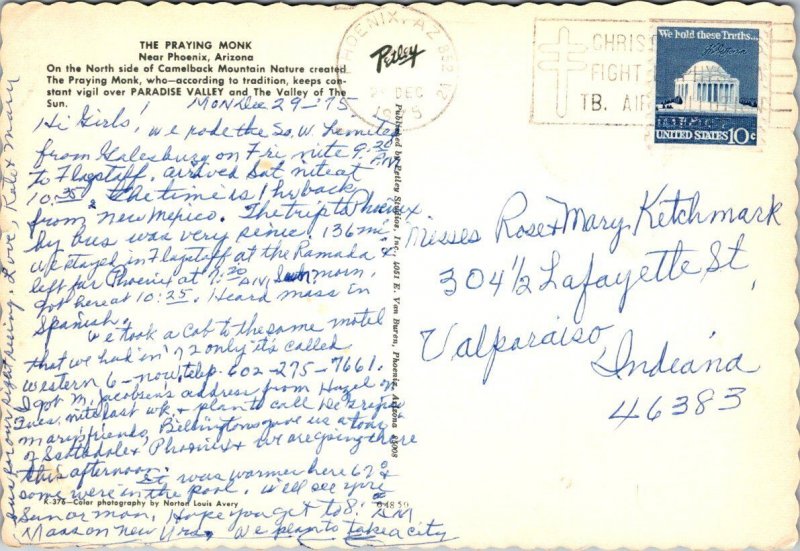 THE PRAYING MONK
Near Phoenix, Arizona
On the North side of Camelback Mountain Nature created
The Praying Monk, who—according to tradition, keeps con-
stant vigil over PARADISE VALLEY and The Valley of The
Sun.
Mon Dec 29-'75
Hi Girls, we rode the So. W. Limited
from Galesburg on Fri nite 9:30
to Flagstaff. arrived Sat nite at
10:35. The time is 1 hr back
from new Mexico. The trip to Phoenix
by bus was very scenic 136 mi
We stayed in Flagstaff at the Ramada &
left for Phoenix at 7:20 A.M. Sun morn.
got here at 10:25. Heard mass in
Spanish.
We took a Cab to the same motel
that we had in '72 only it's called
Western 6 - now, telep. 602-275-7661.
I got M. Jacobsen's address from Hazel on
Tues. nite last wk, & plan to call
Mary's friends, Billingtons gave us a tour
of Scottsdale & Phoenix & we are going there
this afternoon.
It was warmer here 67° &
some were in the pool. We'll see you
Sun or mon, Hope you get to 8: A.M
Mass on new Yrs. We plan to take a city
tour for our sight seeing. Love, Kate & Mary
K-376—Color photography by Norton Louis Avery
64850
Petley
Published by Petley Studios, Inc., 4051 E. Van Buren, Phoenix, Arizona 85008
PHOENIX, AZ 852
DEC
1975
CHRIS
FIGHT
TB. AIR
We hold these Truths...
UNITED STATES 10c
Misses Rose & Mary Ketchmark
304½ Lafayette St,
Valparaiso
Indiana
46383